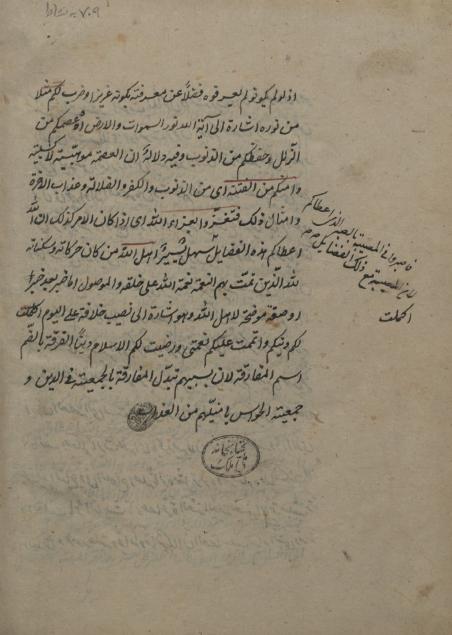 اذ لو لم يكونوا لم يعرفوه فضلاً عن معرفته بكونه عزيزا وضرب لكم مثلا
من نوره اشارة الى آية الله نور السموات والارض وعصمكم من
الزلل وحفظكم من الذنوب وفيه دلالة ان العصمة موهبية لا كسبية
وامنكم من الفتنة اى من الذنوب والكفر والضلالة وعذاب الاخرة
وامثال ذلك فتعزّوا بعزاء الله اى اذا كان الامر كذلك ان الله
اعطاكم هذه الفضايل تسهل اهل الله من كان حركاته وسكناته
لله الّذين تمّت بهم النعمة نعمة الله على خلقه والموصول امّا خبر بعد خبر
او صفة موضحة لاهل الله وهو اشارة الى نصب خلافة على اليوم اكملت
لكم دينكم واتممت عليكم نعمتى ورضيت لكم الاسلام ديناً الفرقة بالضّم
اسم المفارقة لان بسببهم تبدّل المفارقة بالجمعية فى الدين و
جمعية الحواس من العذاب
فاصبروا فى المصيبة بالصبر الذى اعطاكم
ذلك الفضايل
المصيبة مع
اكملت
كتابخانه
ملك